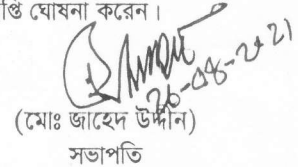 প্তি ঘোষনা করেন।
26-08-2021
(মোঃ জাহেদ উদ্দীন)
সভাপতি